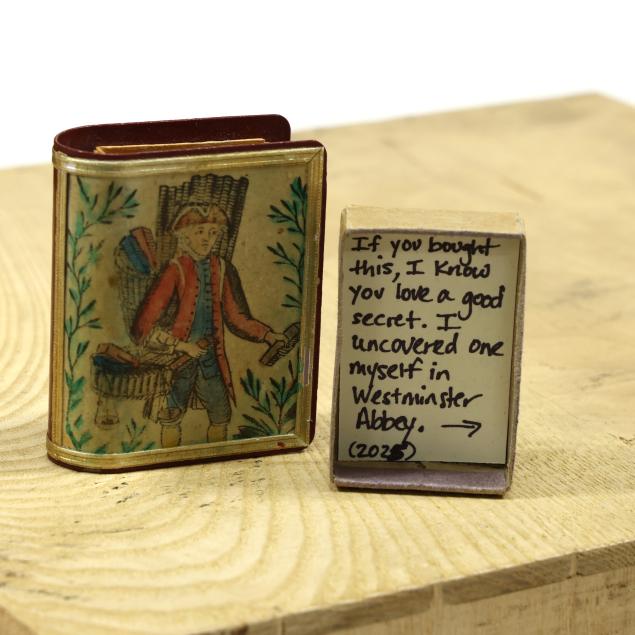 If you bought
this, I know
you love a good
secret. I
uncovered one
myself in
Westminster
Abbey. →
(2025)